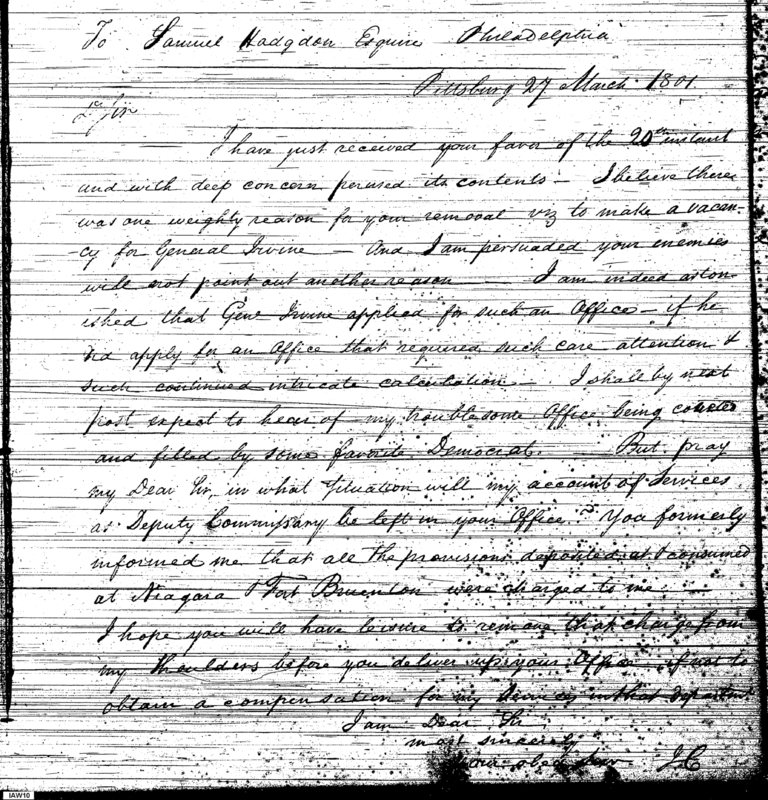 To Samuel Hodgdon Esquire Philadelphia
Pittsburg 27 March 1801
D Sir
I have just received your favor of the 20th instant
and with deep concern perused its contents – I believe there
was one weighty reason for your removal viz to make a vacan-
-cy for General Irvine – And I am persuaded your enemies
will not point out another reason — I am indeed aston-
ished that Genl Irvine applied for such an Office – if he
did apply for an Office that required such care attention &
such continued intricate calculation – I shall by next
post expect to hear of my troublesome Office being coveted
and filled by some favorite Democrat. — But pray
my Dear Sir, in what situation will my account of Services
as Deputy Commissary be left in your Office? You formerly
informed me that all the provisions deposited at & consumed
at Niagara & Fort were charged to me —
I hope you will have leisure to remove that charge from
my Shoulders before you deliver up your Office – if not to
obtain a compensation for my Services in that department
I am Dear Sir
most sincerely
your obed Serv J C
IAW10